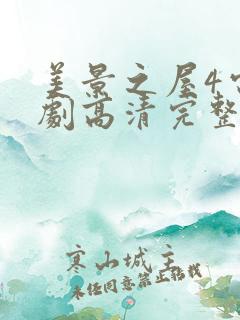 美景之屋4
劇高清完整
寒山城主
未任同意禁止轉载